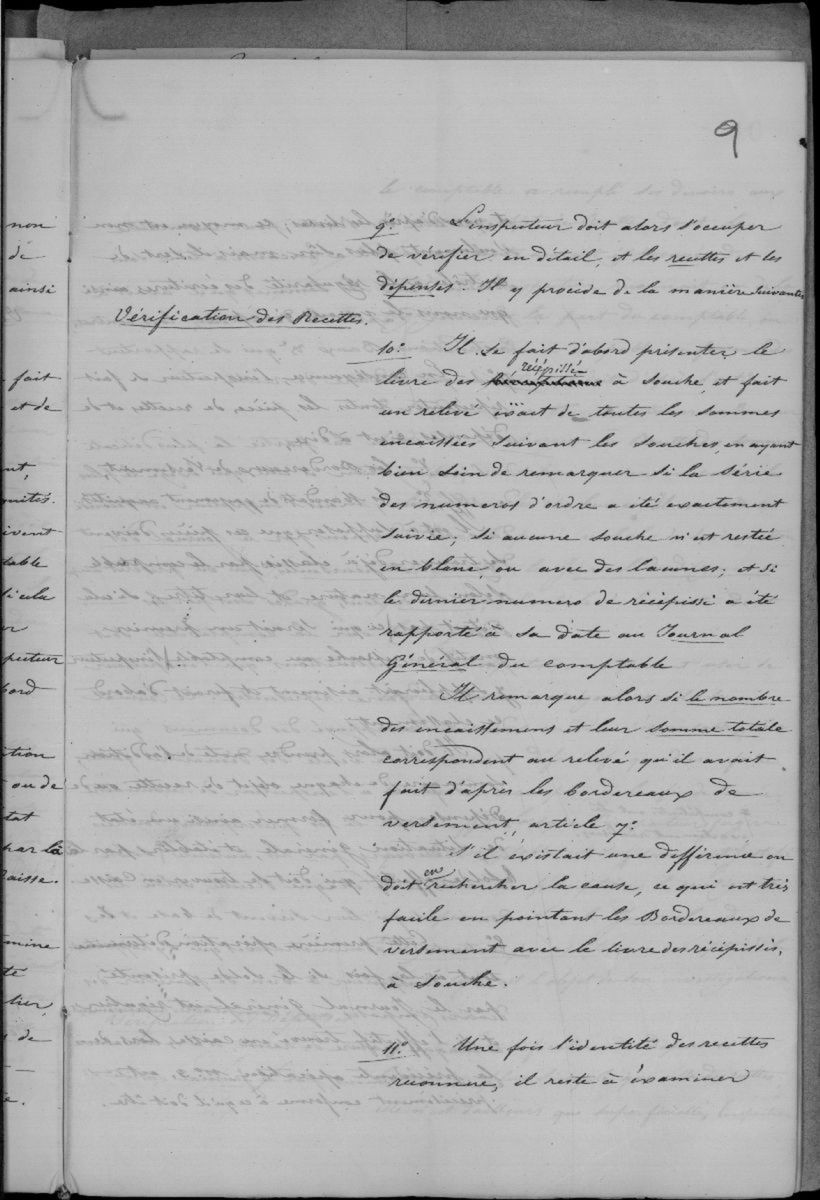 9
9.° L'inspecteur doit alors s'occuper
de vérifier en détail, et les recettes et les
dépenses. Il y procède de la manière suivante
Vérification des Recettes.
10.° Il se fait d'abord présenter le
livre des récépissés à souche, et fait
un relevé exact de toutes les sommes
encaissées suivant les souches, en ayant
bien soin de remarquer si la série
des numeros d'ordre a été exactement
suivie; si aucune souche n'est restée
en blanc, ou avec des lacunes; et si
le dernier numero de récépissé a été
rapporté à sa date au Journal
Général du comptable
Il remarque alors si le nombre
des encaissements et leur somme totale
correspondent au relevé qu'il avait
fait d'après les bordereaux de
versement, article 7.°
S'il éxistait une defférence on
doit en rechercher la cause, ce qui est très
facile en pointant les Bordereaux de
versement avec le livre des récépissés,
à souche.
11.° Une fois l'identité des recettes
reconnue, il reste à éxaminer
non
de
ainsi
fait
et de
ivent
table
bord
ou de
par la
Caisse.
de